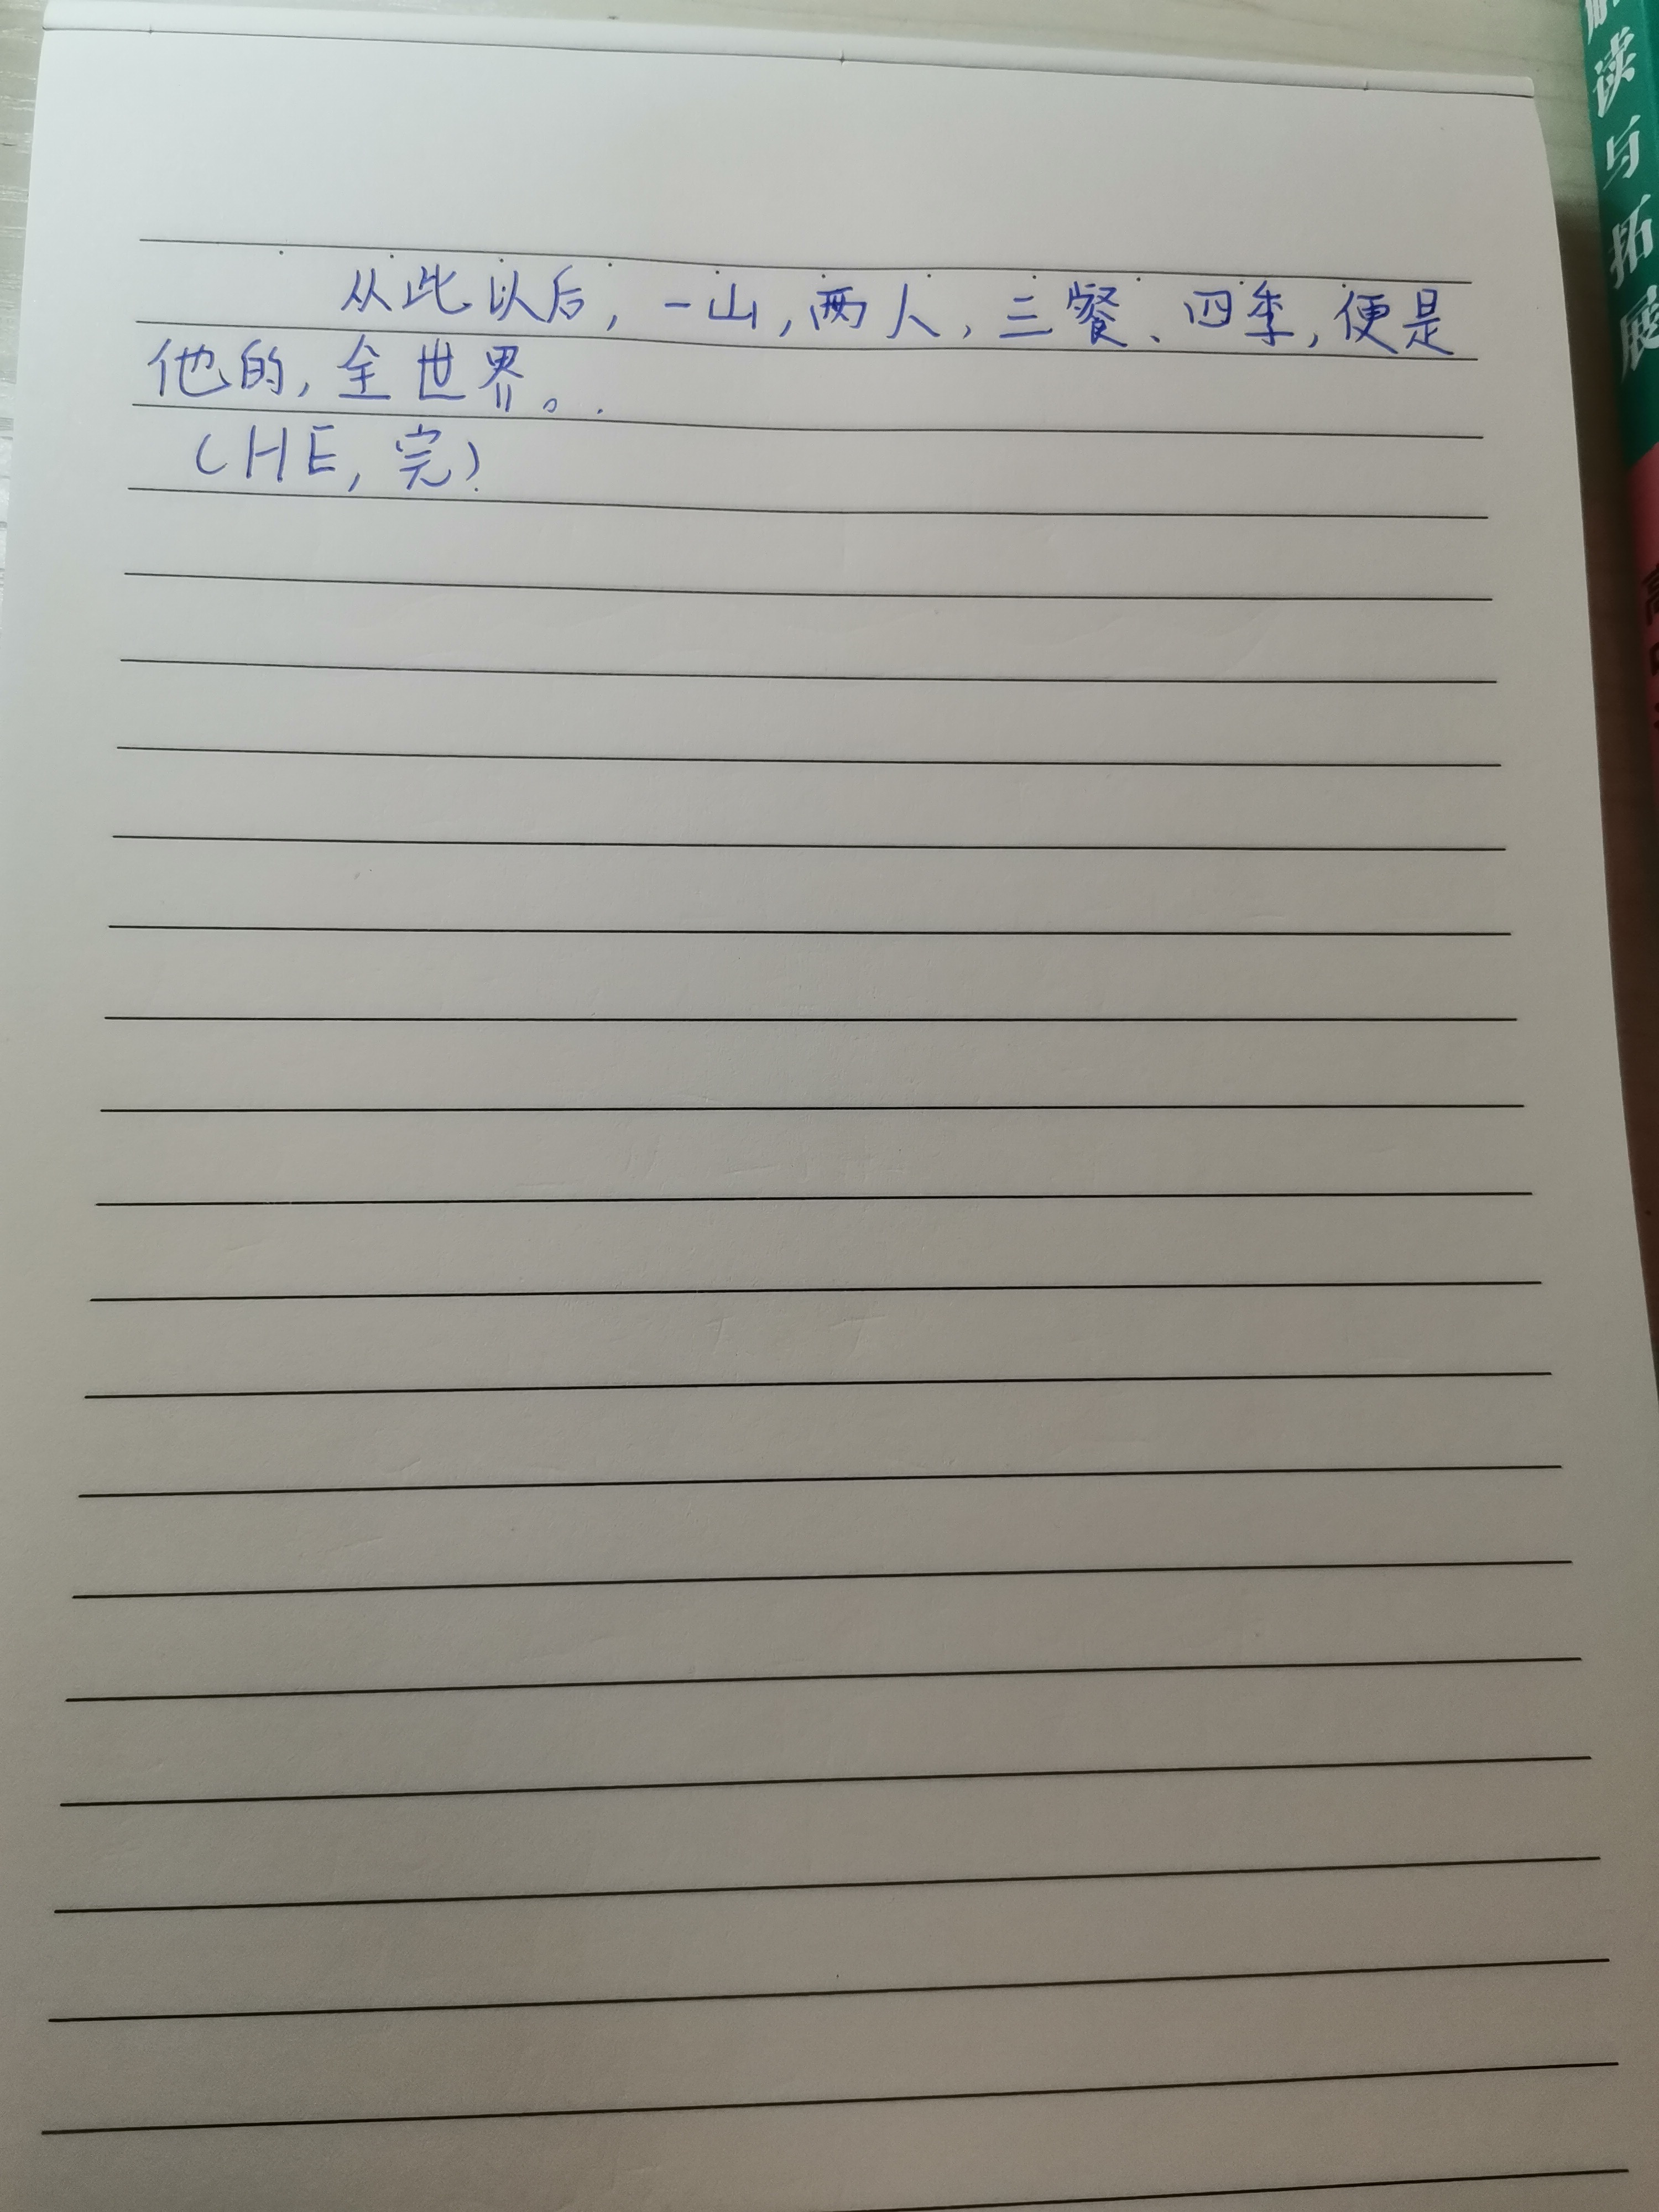 从此以后，一山，两人，三餐、四季，便是
他的，全世界。.
（HE，完）
读与拓展